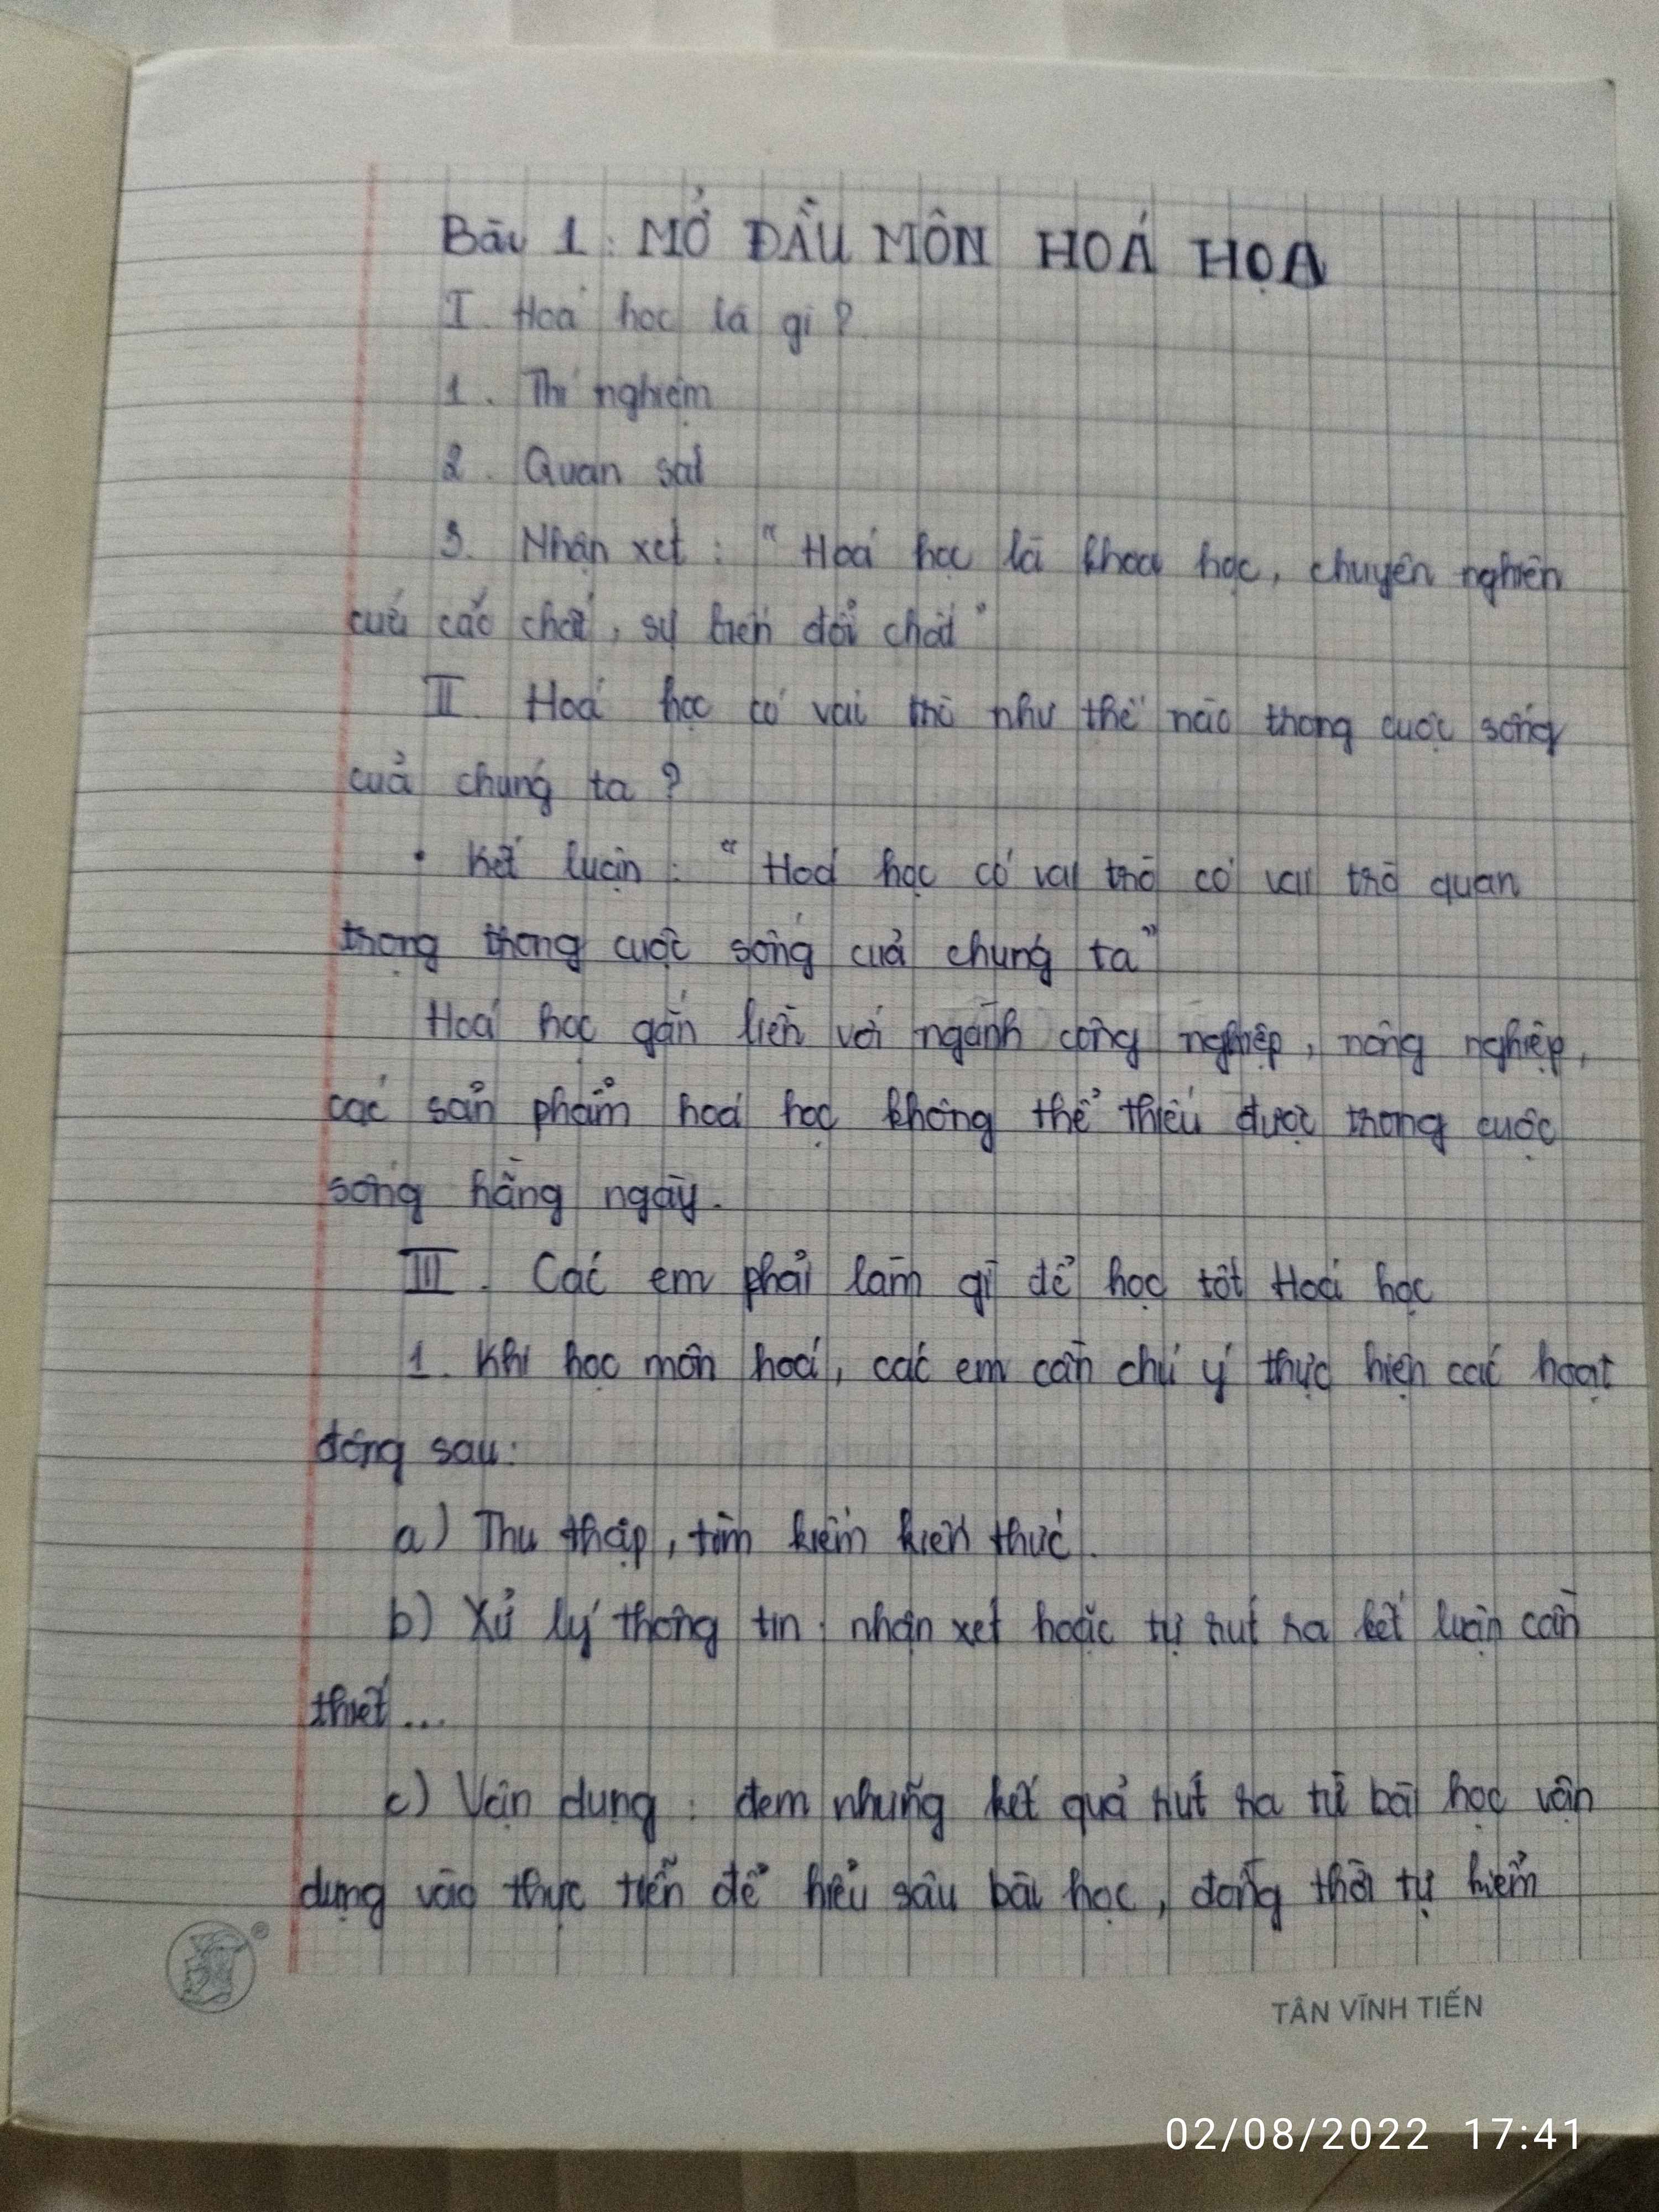 Bài 1: MỞ ĐẦU MÔN HOÁ HỌA
I. Hoá học là gì?
1. Thí nghiệm
2. Quan sát
3. Nhận xét: " Hoá học là khoa học, chuyên nghiên
cứu các chất, sự biến đổi chất"
II. Hoá học có vai trò như thế nào thong cuộc sống
cuả chúng ta?
• Kết luận: " Hoá học có vai trò có vai trò quan
trọng thong cuộc sống cuả chúng ta"
Hoá học gắn liền với ngành công nghiệp, nông nghiệp,
các sản phẩm hoá học không thể thiếu được trong cuộc
sống hằng ngày.
III. Các em phải làm gì để học tốt Hoá học
1. Khi học môn hoá, các em cần chú ý thực hiện các hoạt
động sau:
a) Thu thập, tìm kiếm kiến thức.
b) Xử lý thông tin: nhận xét hoặc tự rút ra kết luận cần
thiết...
c) Vận dụng: đem những kết quả rút ra từ bài học vận
dụng vào thực tiễn để hiểu sâu bài học, đồng thời tự kiểm
TÂN VĨNH TIẾN
02/08/2022 17:41